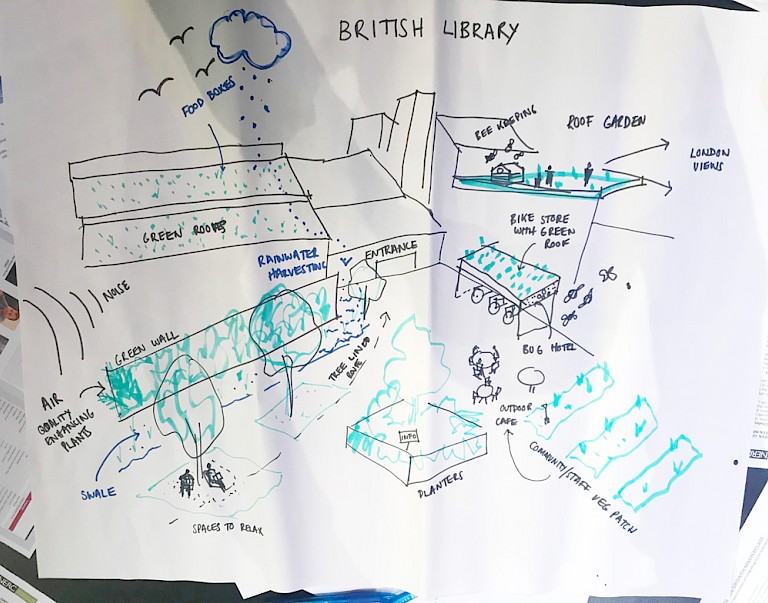 BRITISH LIBRARY
FOOD BOXES
BEE KEEPING
ROOF GARDEN
LONDON
VIEWS
BIKE STORE
WITH GREEN
ROOF
GREEN ROOFS
RAINWATER
HARVESTING
ENTRANCE
NOISE
GREEN WALL
TREE LINED
BUG HOTEL
AIR
QUALITY
ENHANCING
PLANTS
OUTDOOR
CAFE
INFO
SWALE
PLANTERS
COMMUNITY/STAFF VEG PATCH
SPACES TO RELAX
NERC